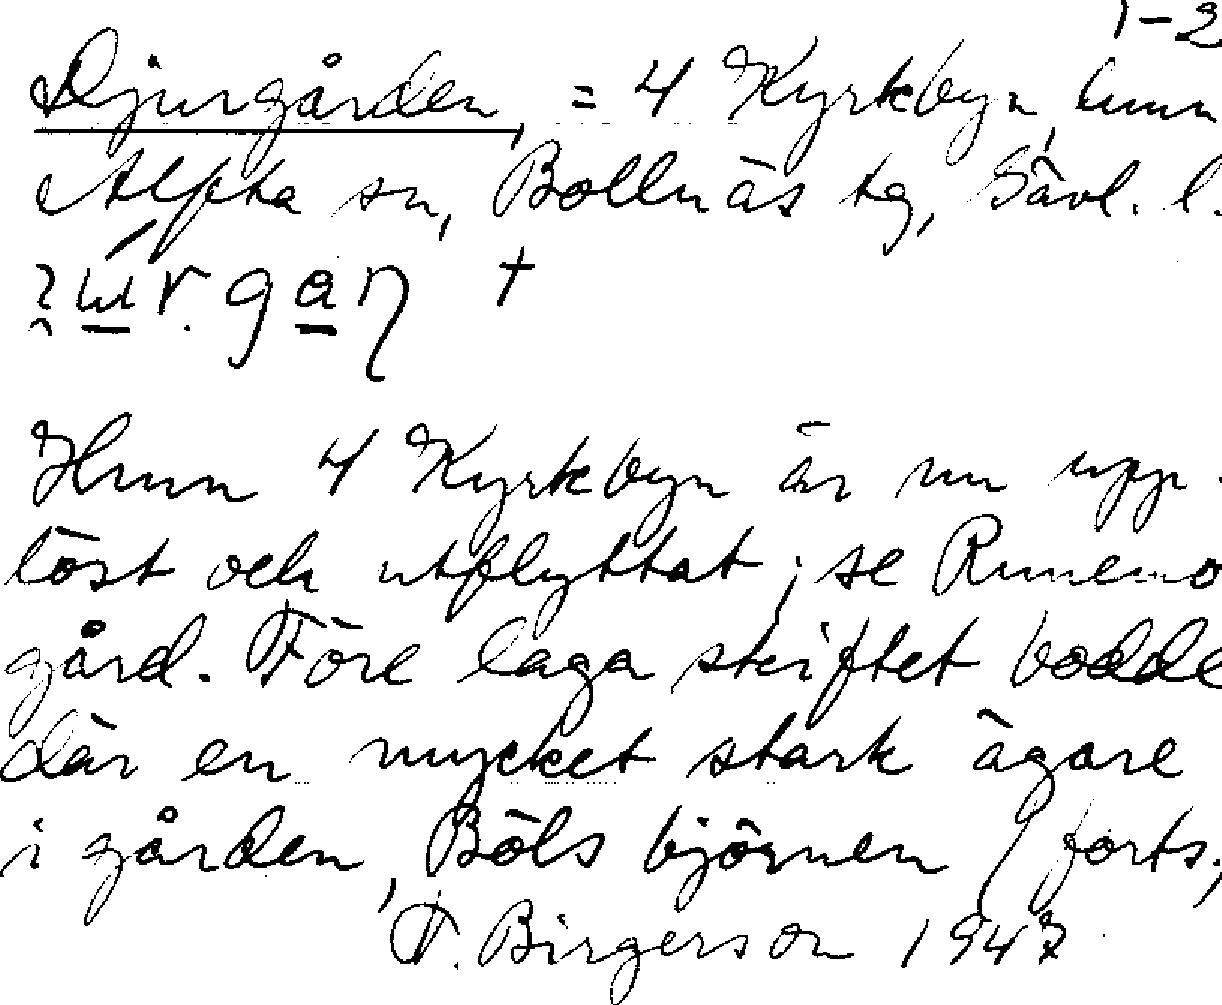 1-2
Djurgården, = 4 Kyrkbyn, hmn
Alfta sn, Bollnäs tg, Gävl. l.
†
Hmn 4 Kyrkbyn är nu upp-
löst och utflyttat; se Runemo
gård. Före laga skiftet bodde
där en mycket stark ägare
i gården, Böls björnen (forts,
F. Birgerson 1947